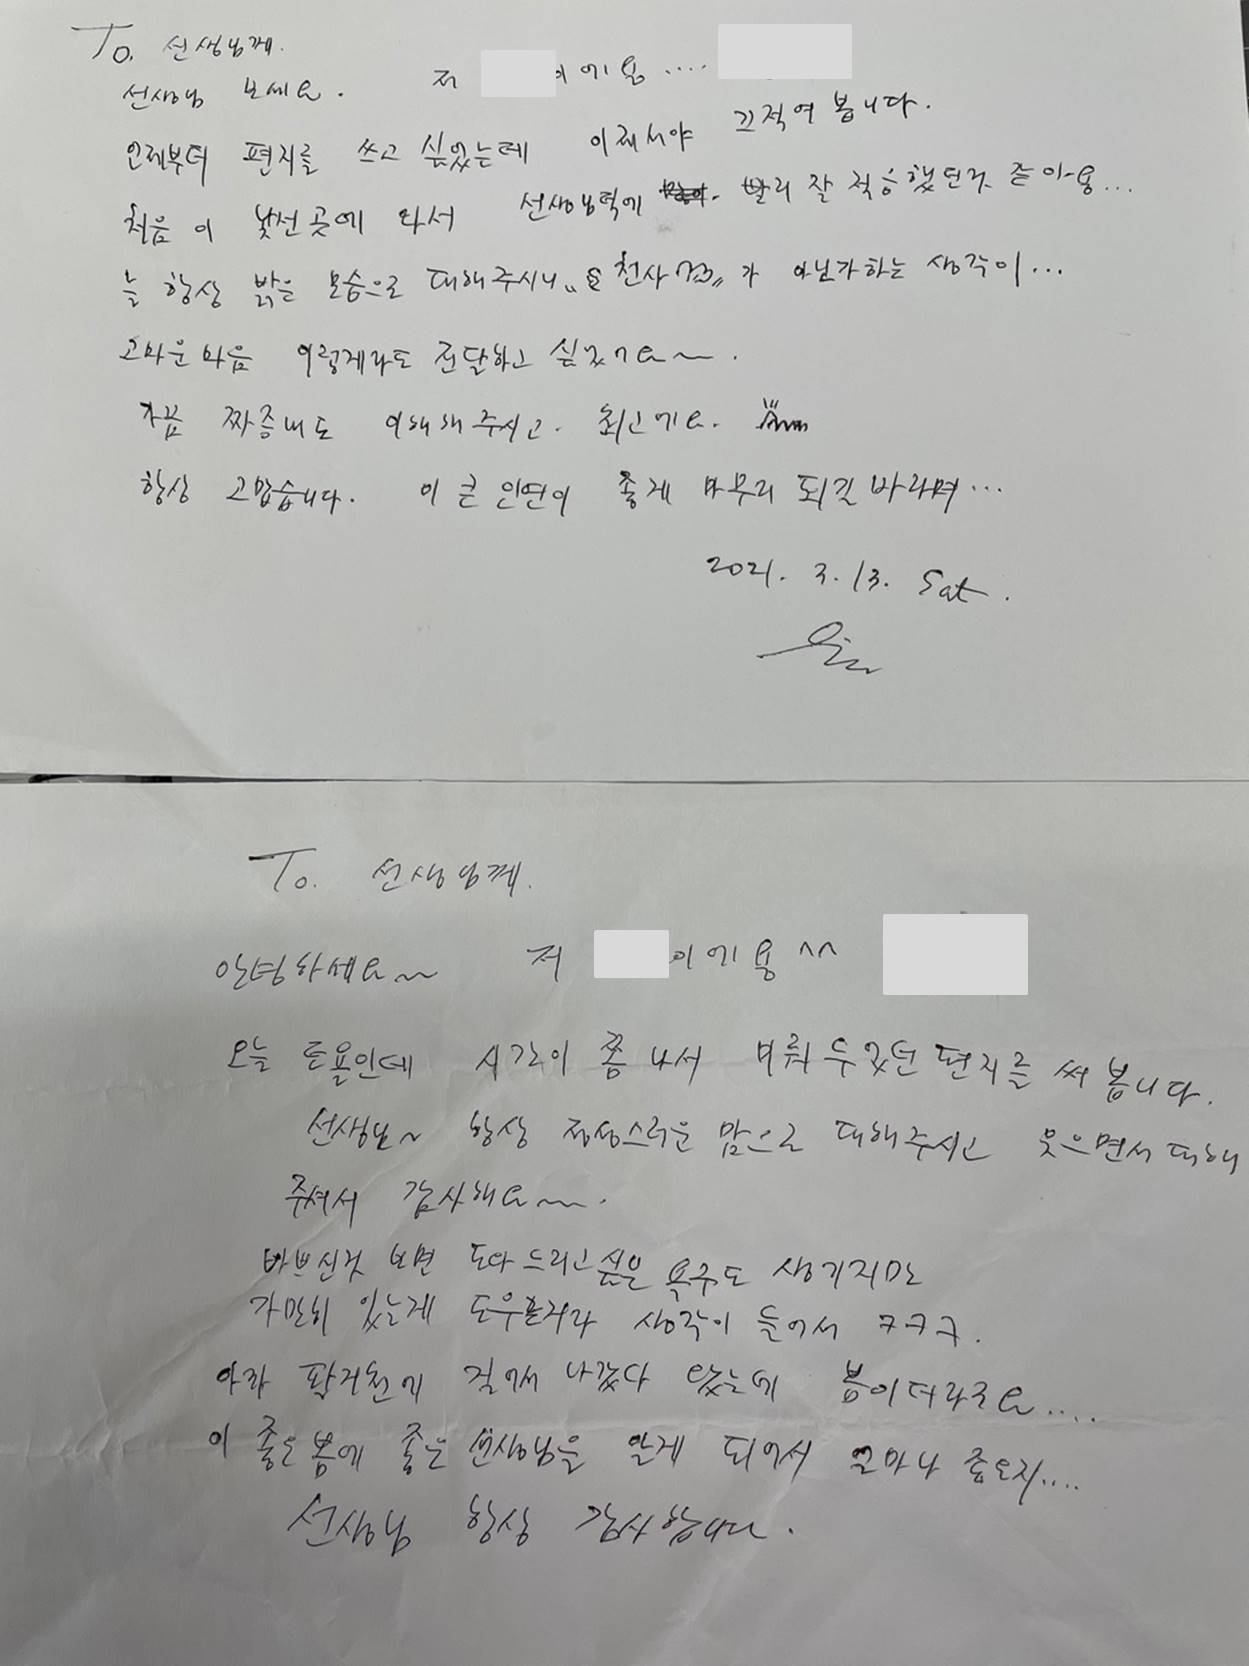 To. 선생님께.
선생님 보세요. 저 이에용 ....
언제부터 편지를 쓰고 싶었는데 이제서야 끄적여 봅니다.
처음 이 낯선 곳에 와서 선생님덕에 빨리 잘 적응했던거 같아용...
늘 항상 밝은 모습으로 대해주시니 "천사" 가 아닌가하는 생각이...
고마운 마음 이렇게라도 전달하고 싶었어요~.
가끔 짜증내도 이해해주시고. 최고예요.
항상 고맙습니다. 이 큰 인연이 좋게 마무리 되길 바라며...
2021. 3. 13. Sat.
To. 선생님께.
안녕하세요~ 저 이에용 ^^
오늘 토욜인데 시간이 쫌 나서 미뤄 두었던 편지를 써 봅니다.
선생님~ 항상 정성스러운 맘으로 대해주시고 웃으면서 대해
주셔서 감사해요~.
바쁘신것 보면 도와 드리고 싶은 욕구도 생기지만
가만히 있는게 도우는거라 생각이 들어서 ㅋㅋㅋ.
아까 걸어서 나갔다 왔는데 봄이더라구요....
이 좋은 봄에 좋은 선생님을 알게 되어서 얼마나 좋은지....
선생님 항상 감사합니다.